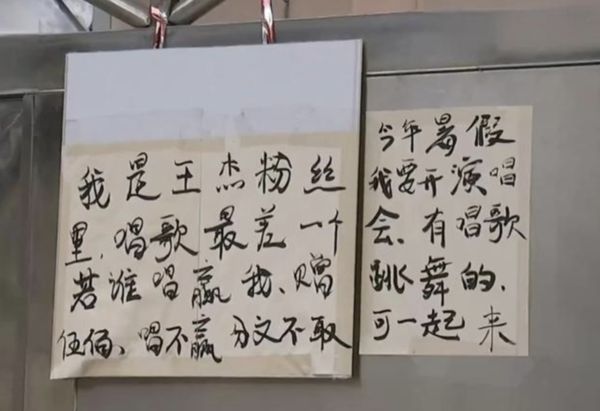 我是王杰粉丝
里,唱歌最差一个
若谁唱赢我、赠
伍佰、唱不赢分文不取
今年暑假
我要开演唱
会、有唱歌
跳舞的,
可一起来